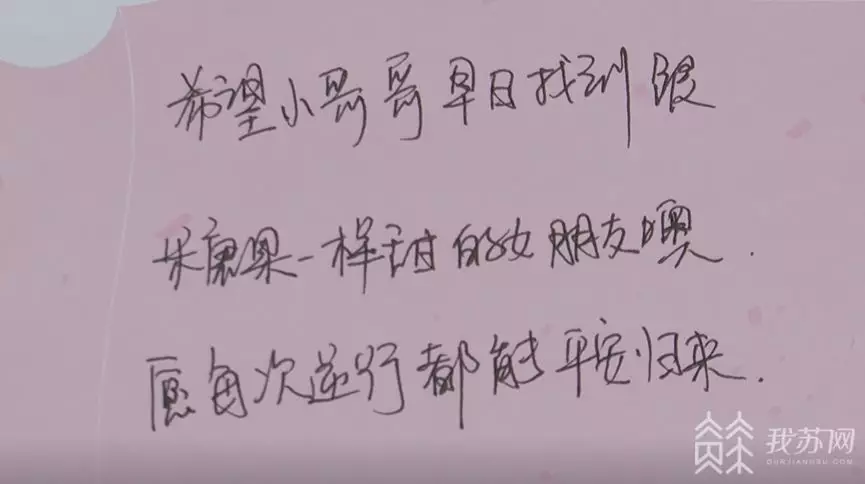 希望小哥哥早日找到跟
米康果一样甜的女朋友噢.
愿每次逆行都能平安归来.
我苏网
OURJIANGSU.COM